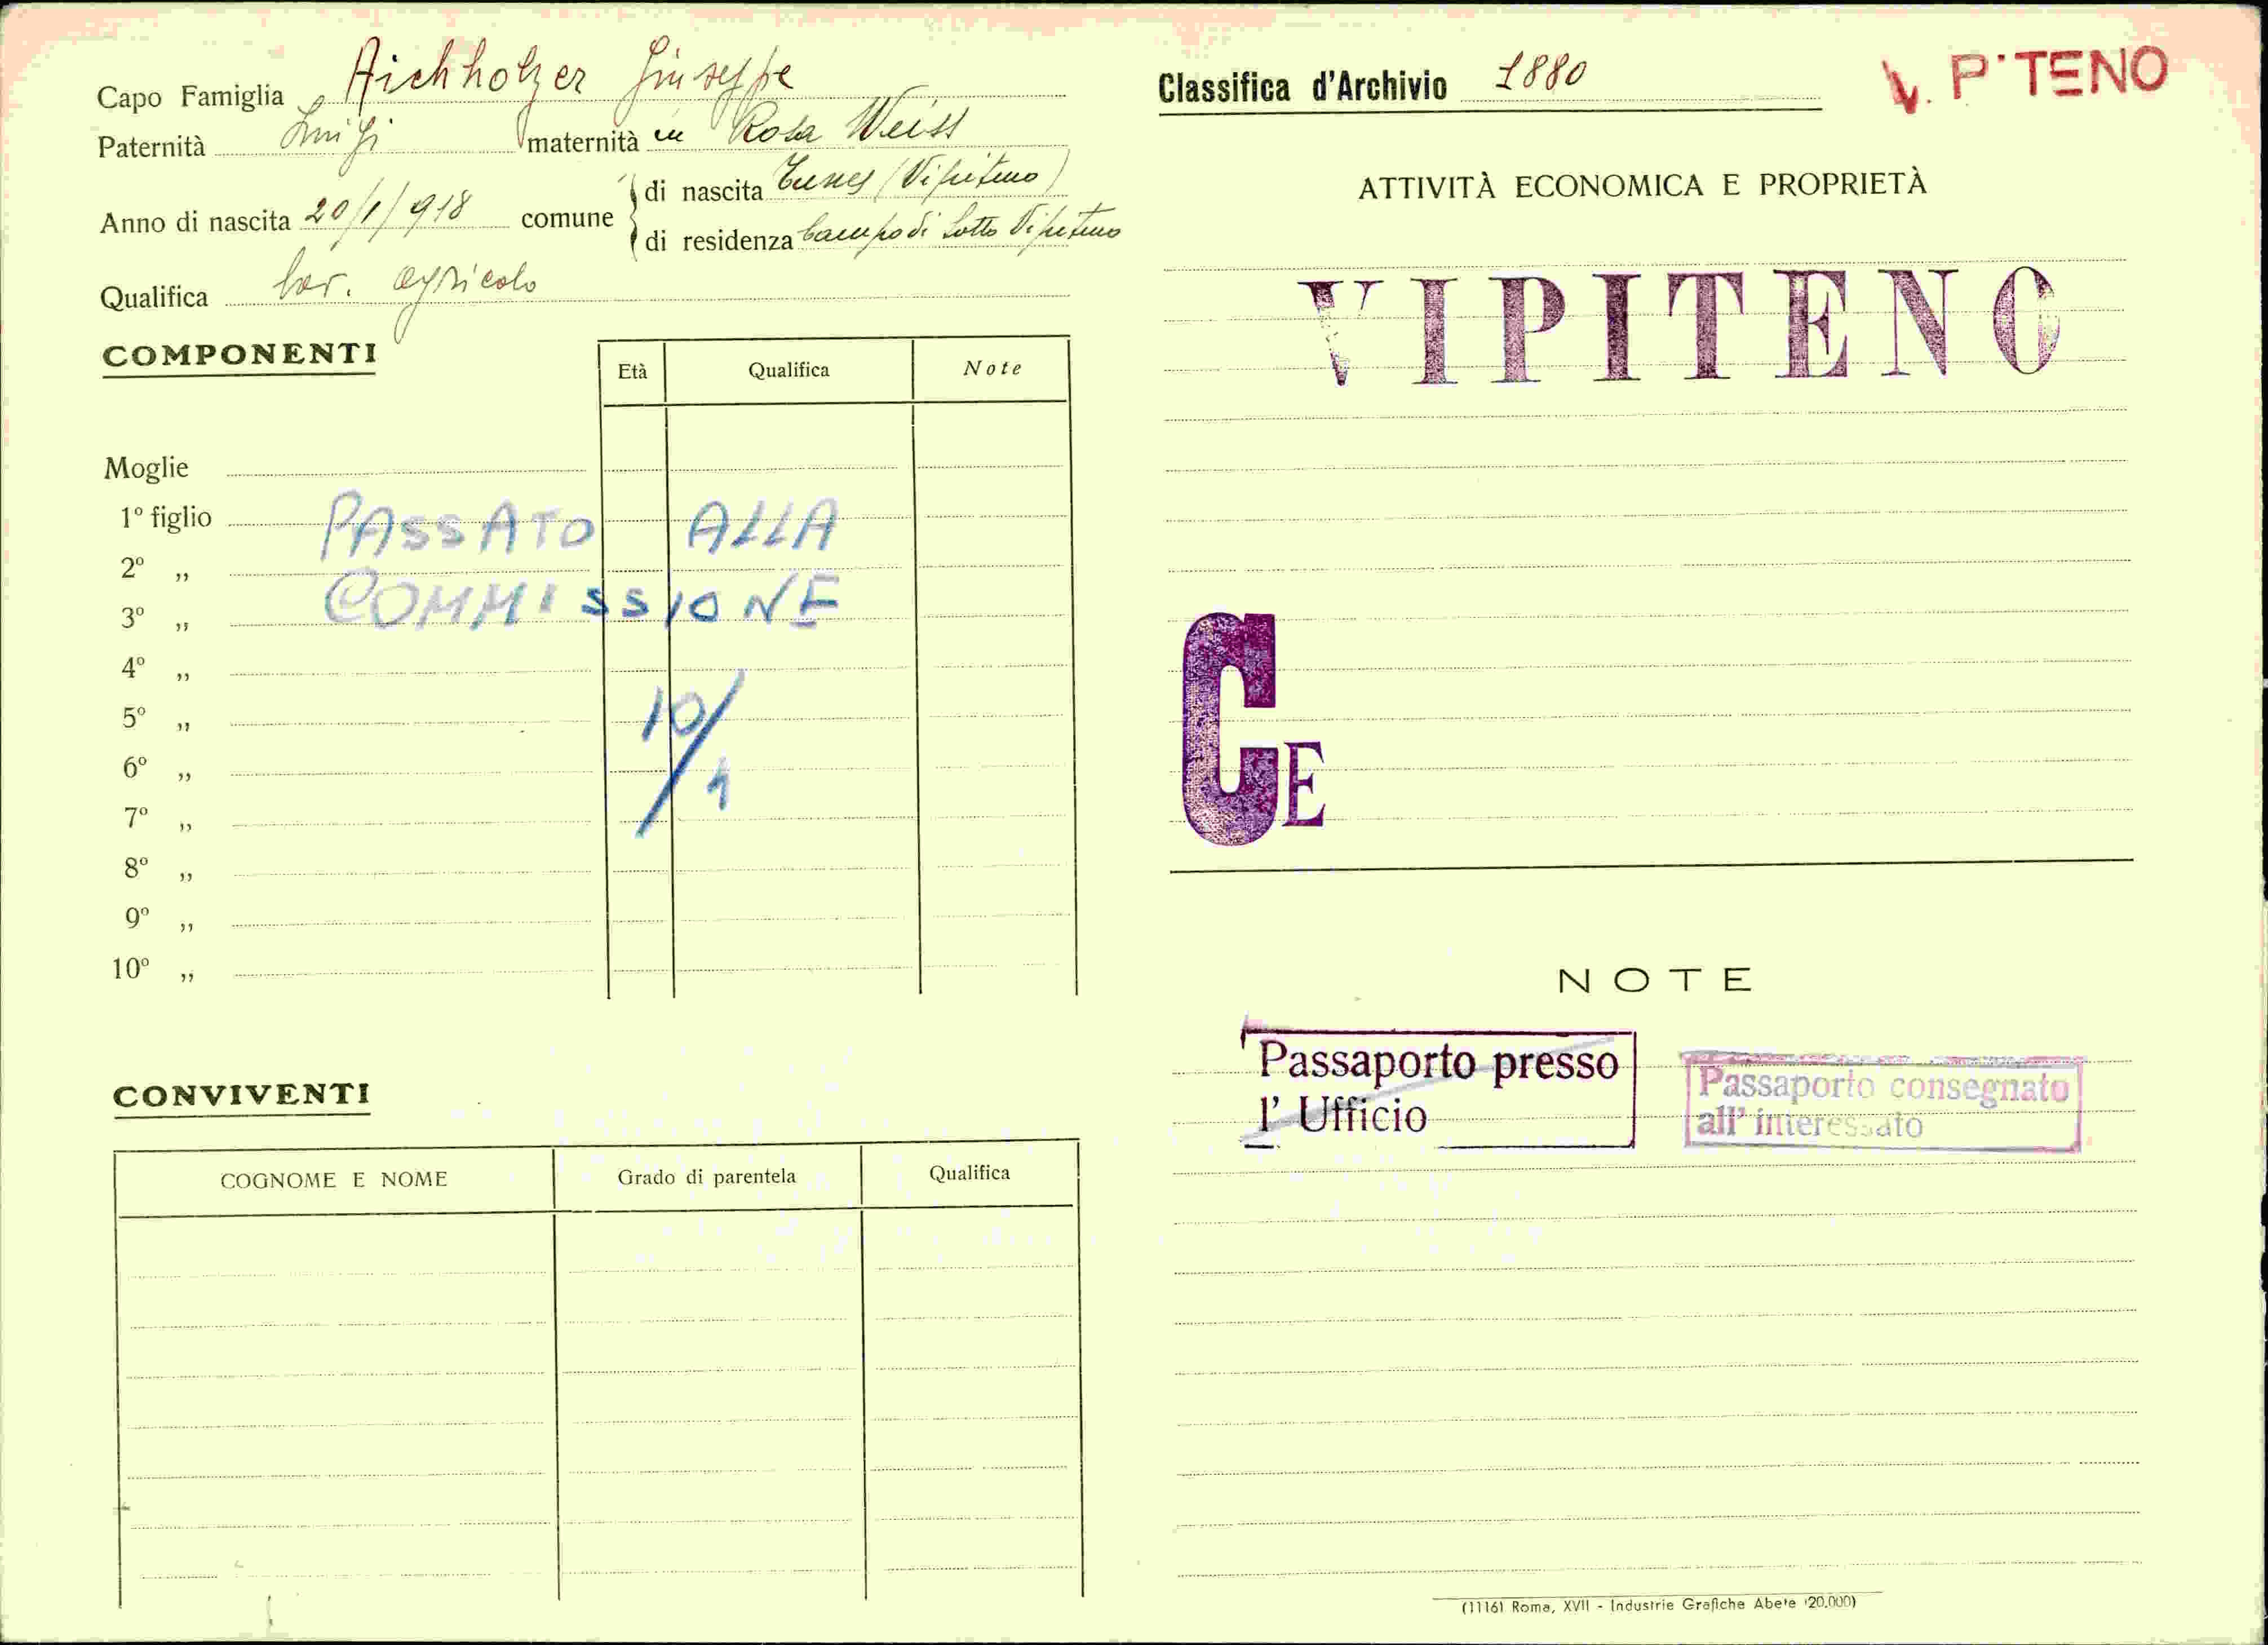 Capo Famiglia Aichholzer Giuseppe
Paternità Luigi maternità in Rosa Weiss
Anno di nascita 20/1/918 comune
di nascita Tunes (Vipiteno)
di residenza Campo di Sotto Vipiteno
Qualifica lav. agricolo
COMPONENTI
Età Qualifica Note
Moglie
1º figlio
2º „
3º „
4º „
5º „
6º „
7º „
8º „
9º „
10º „
PASSATO ALLA
COMMISSIONE
10/1
CONVIVENTI
COGNOME E NOME Grado di parentela Qualifica
Classifica d'Archivio 1880
V. P'TENO
ATTIVITÀ ECONOMICA E PROPRIETÀ
VIPITENO
CE
NOTE
Passaporto presso
l' Ufficio
Passaporto consegnato
all' interessato
(1116) Roma, XVII - Industrie Grafiche Abete (20.000)